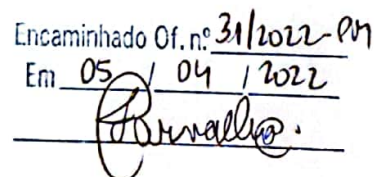 Encaminhado Of. n.º 31/2022-PM
Em 05 / 04 / 2022